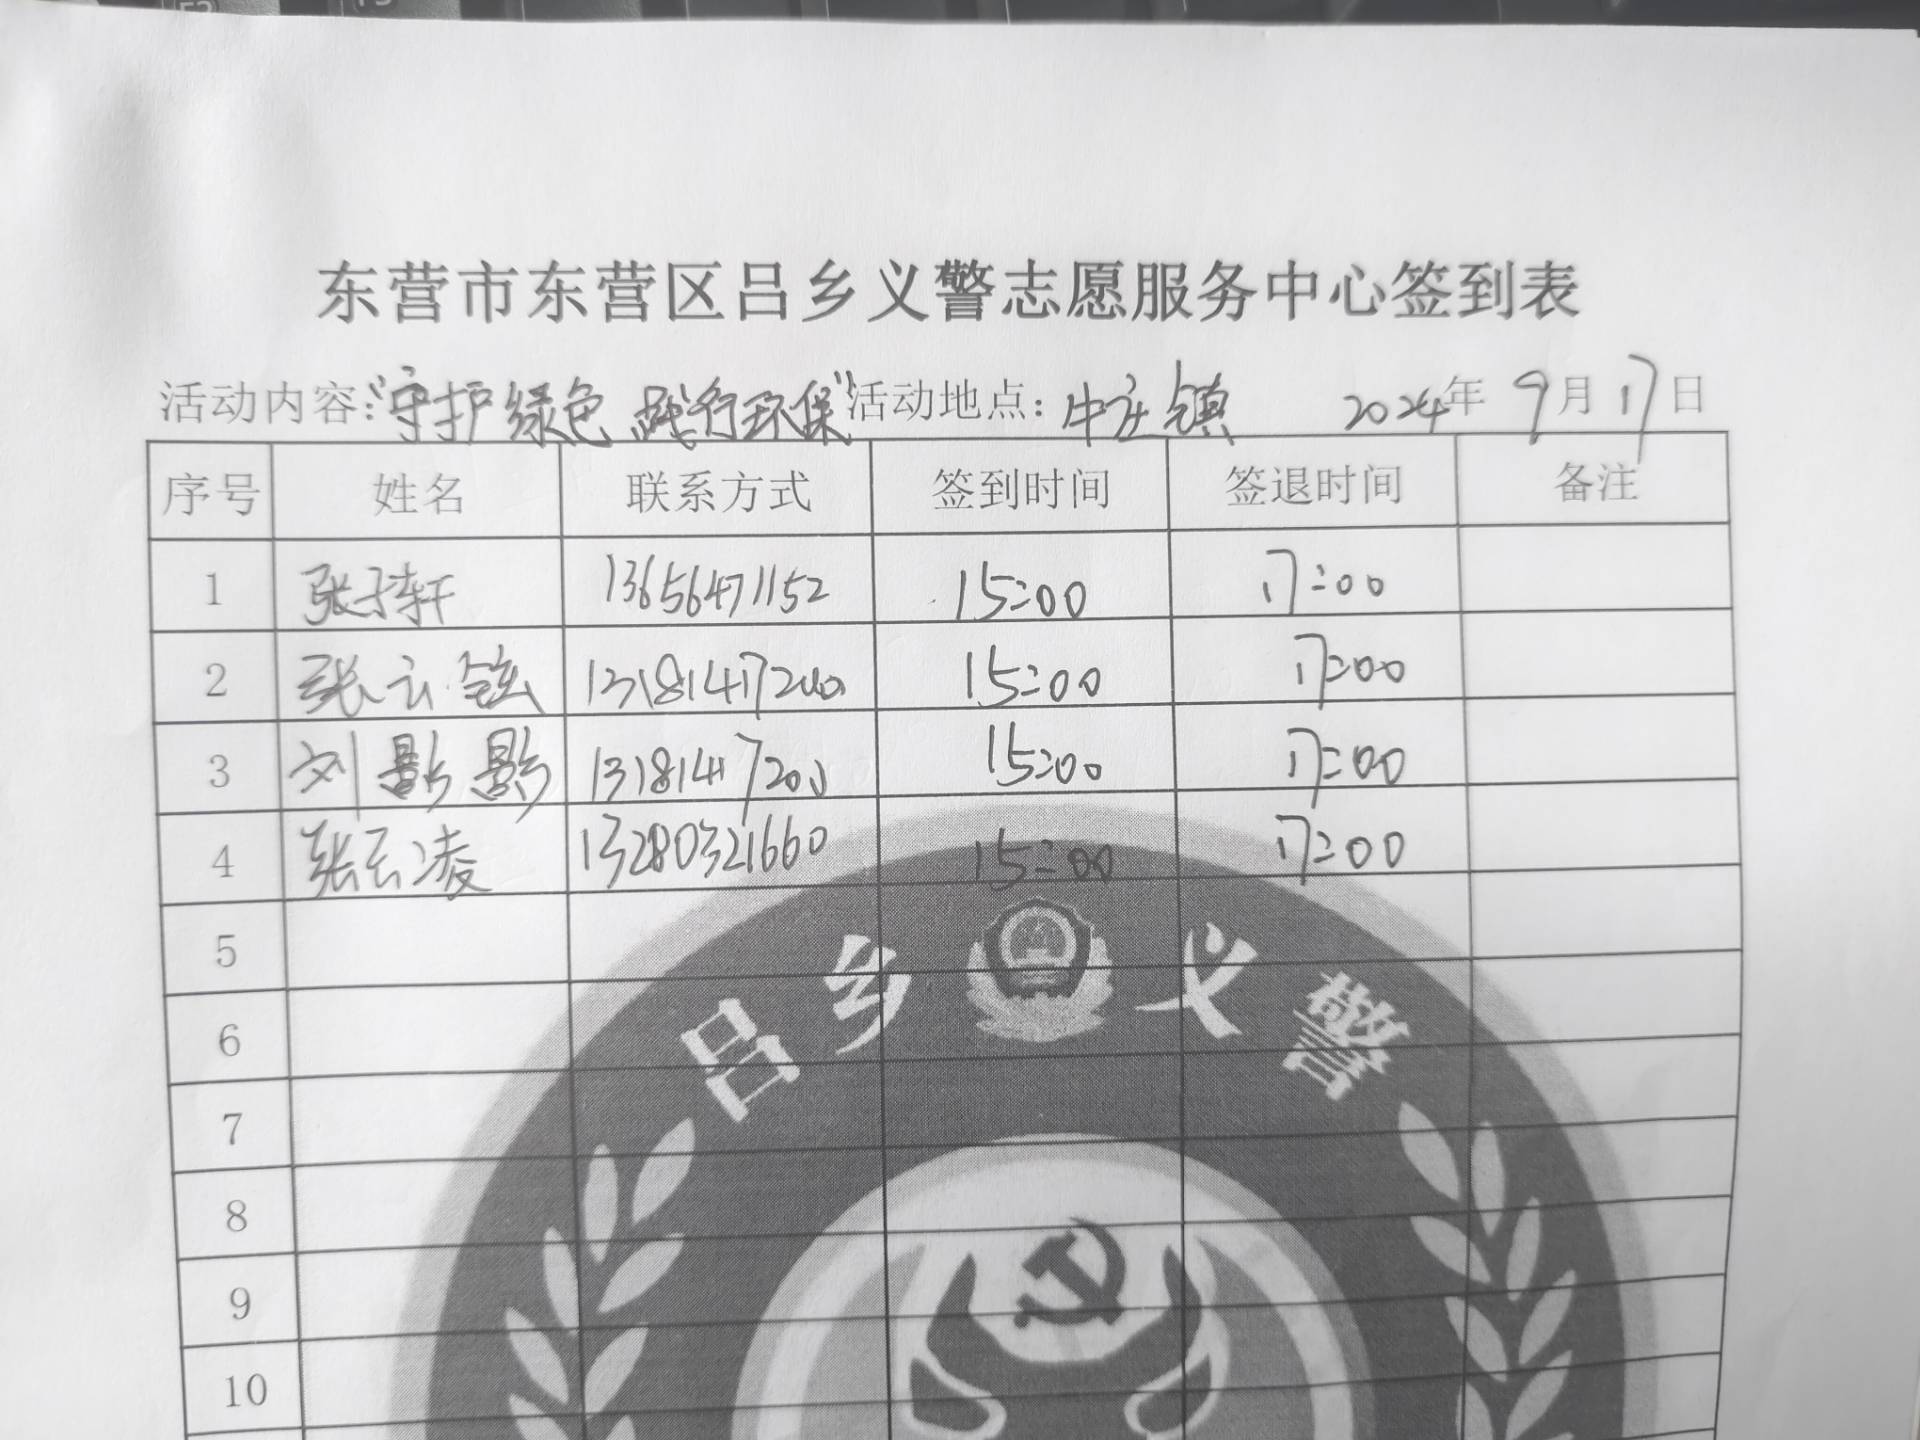 东营市东营区吕乡义警志愿服务中心签到表
活动内容:“守护绿色 践行环保”活动地点: 牛庄镇 2024年 9月17日
序号 姓名 联系方式 签到时间 签退时间 备注
1 张子轩 13656471152 15:00 17:00
2 张云铉 13181417200 15:00 17:00
3 刘影影 13181417200 15:00 17:00
4 张云凌 13280321660 15:00 17:00
5
6
7
8
9
10
吕乡义警